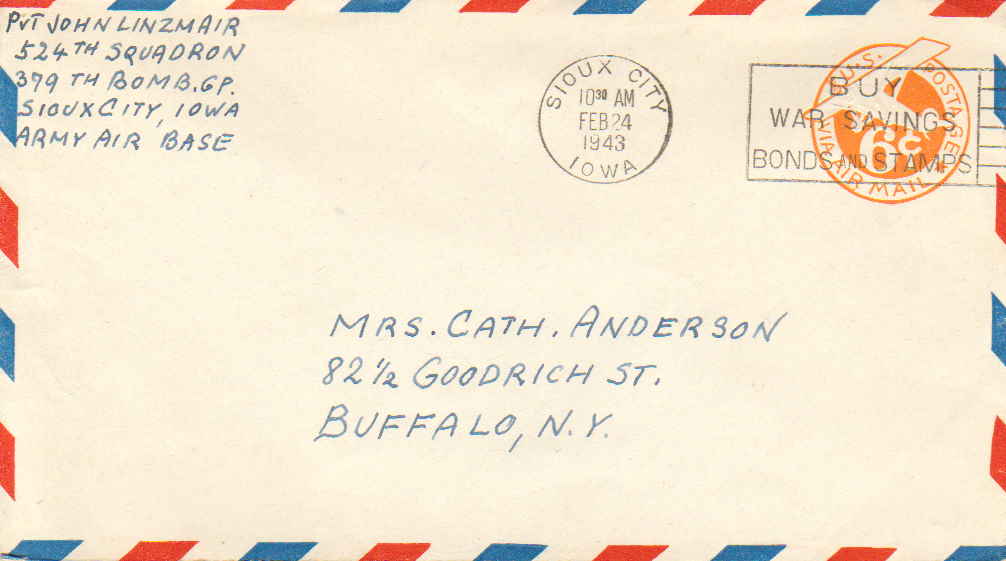 PVT JOHN LINZMAIR
524TH SQUADRON
379 TH BOMB. GP.
SIOUX CITY, IOWA
ARMY AIR BASE
SIOUX CITY
10 30 AM
FEB 24
1943
IOWA
BUY
WAR SAVINGS
BONDS AND STAMPS
U.S. POSTAGE
6¢
VIA AIR MAIL
MRS. CATH. ANDERSON
82 1/2 GOODRICH ST.
BUFFALO, N.Y.